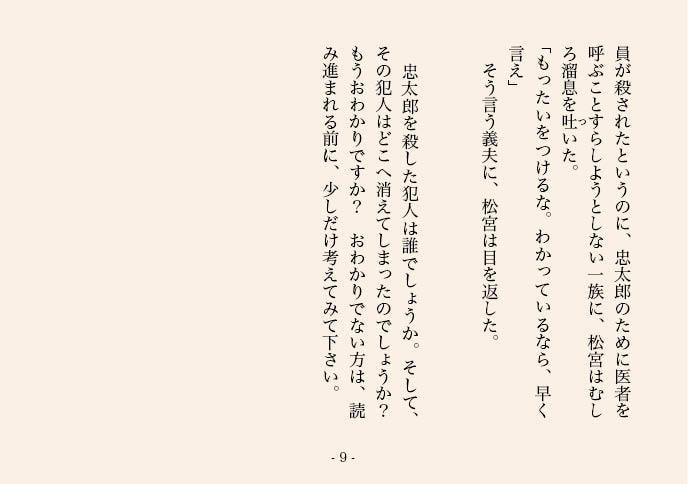 員が殺されたというのに、忠太郎のために医者を
呼ぶことすらしようとしない一族に、松宮はむし
ろ溜息を吐いた。
っ
「もったいをつけるな。わかっているなら、早く
言え」
　そう言う義夫に、松宮は目を返した。
　忠太郎を殺した犯人は誰でしょうか。そして、
その犯人はどこへ消えてしまったのでしょうか？
もうおわかりですか？　おわかりでない方は、読
み進まれる前に、少しだけ考えてみて下さい。
- 9 -